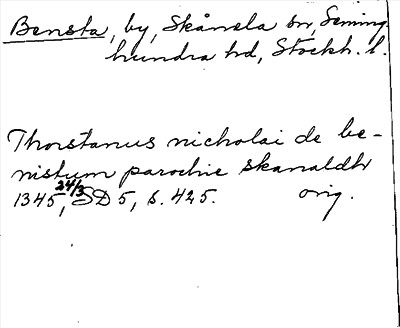 Bensta, by, Skånela sn, Seming
hundra hd, Stockh. l.
Thorstanus nicholai de be-
nistum parochie skanaldhr
1345, 24/3 SD 5, s. 425. orig.